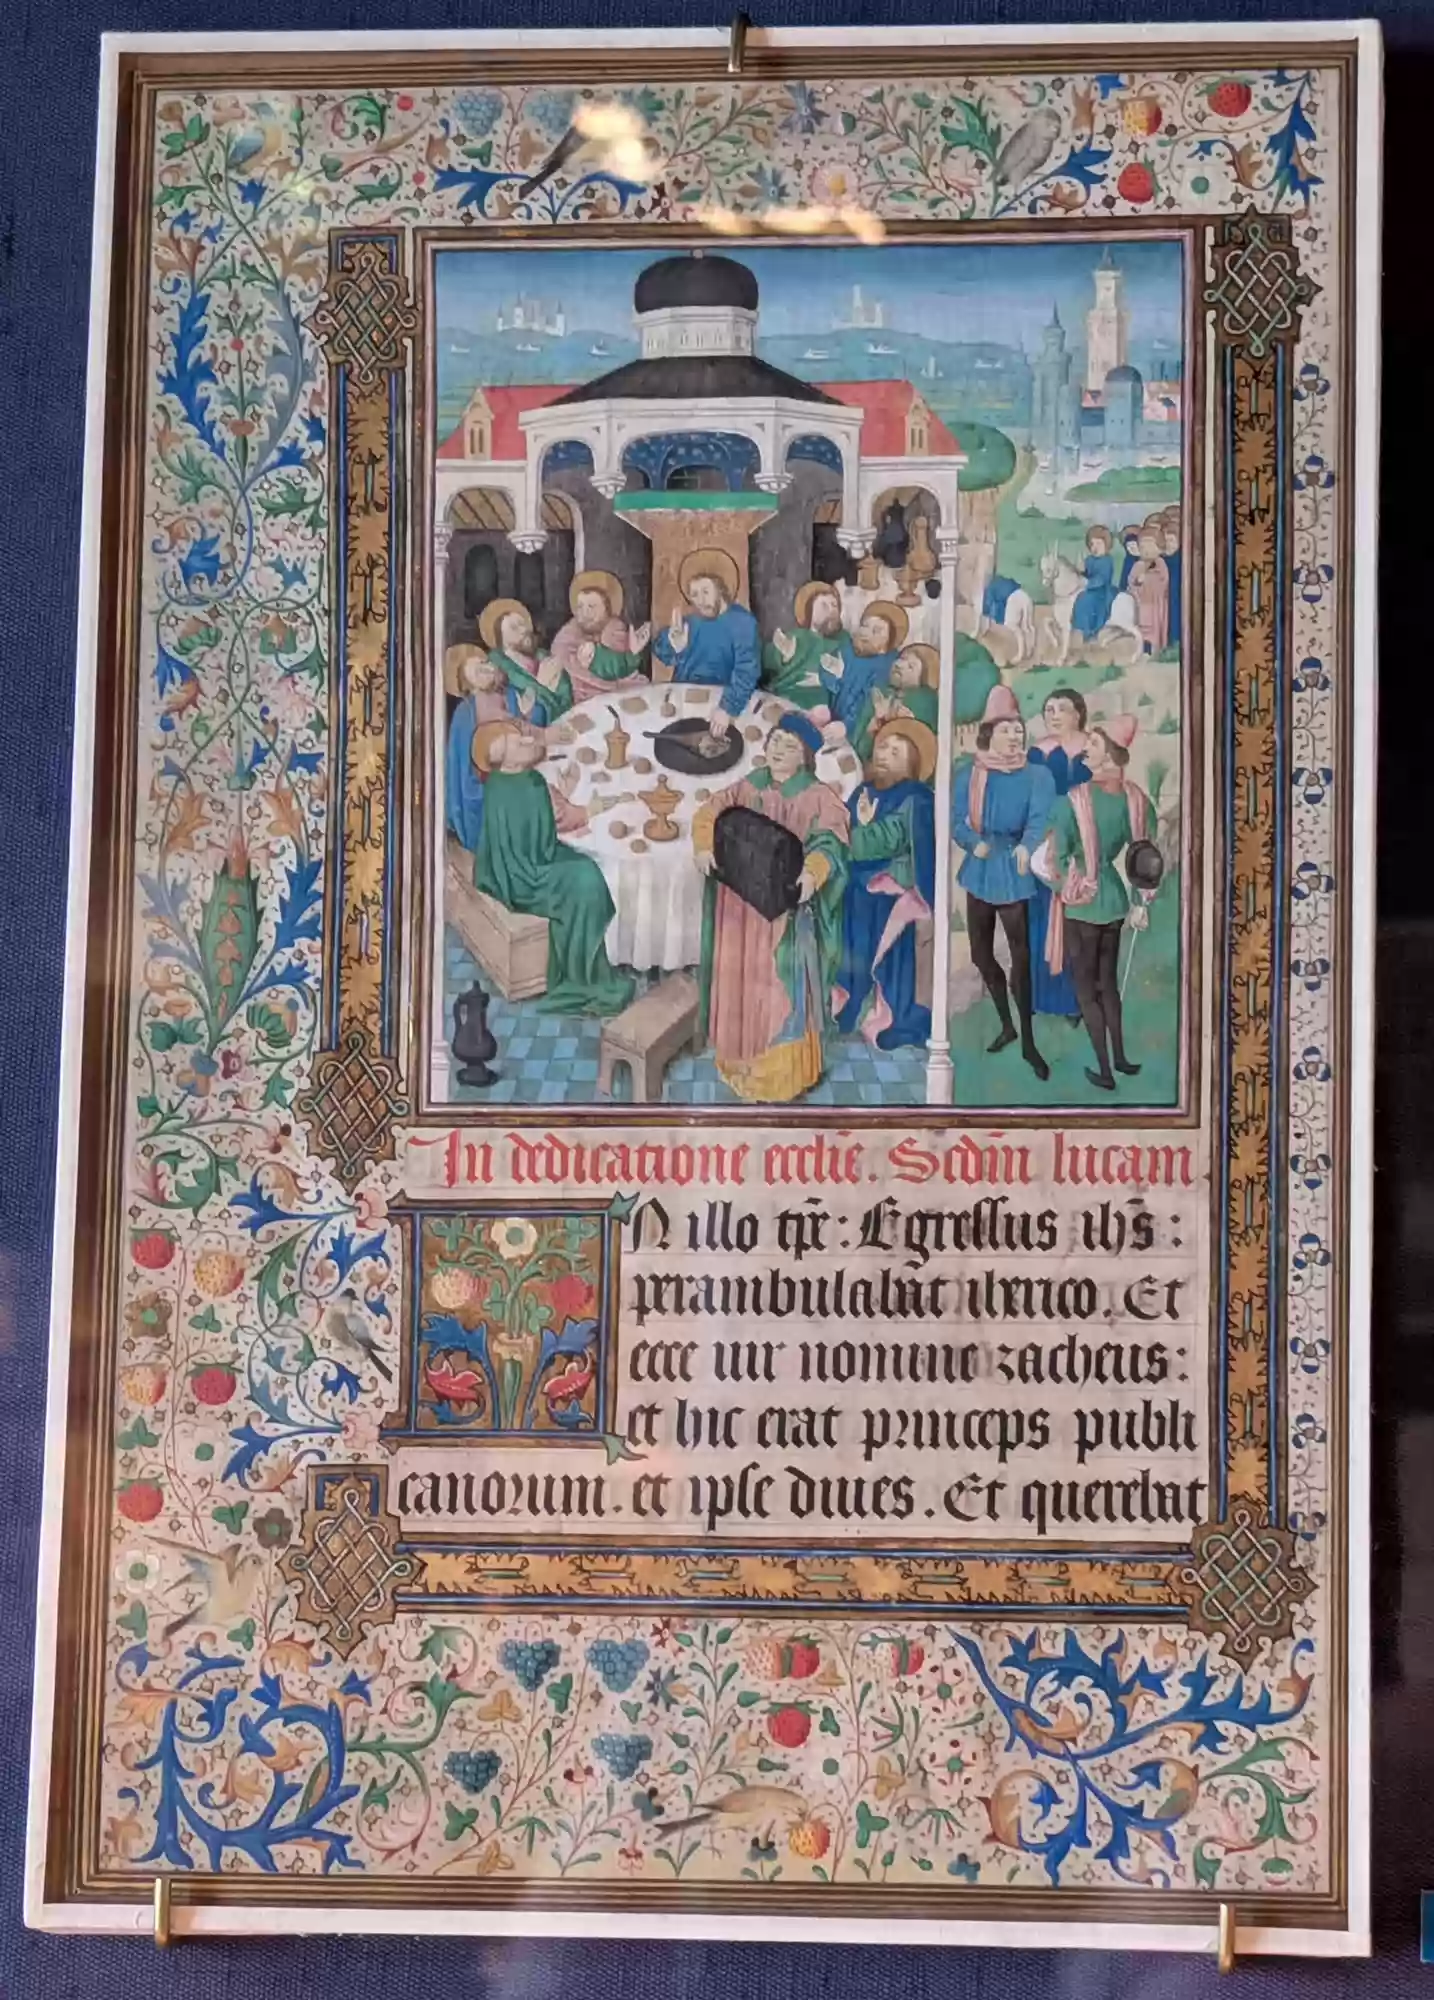 In dedicatione ecclīe. Scdm̄ lucam
N illo tp̄r: Egressus ihs̄:
perambulabāt iherico. Et
ecce uir nomine zacheus:
et hic erat princeps publi
canorum. et ipse diues. Et querebat